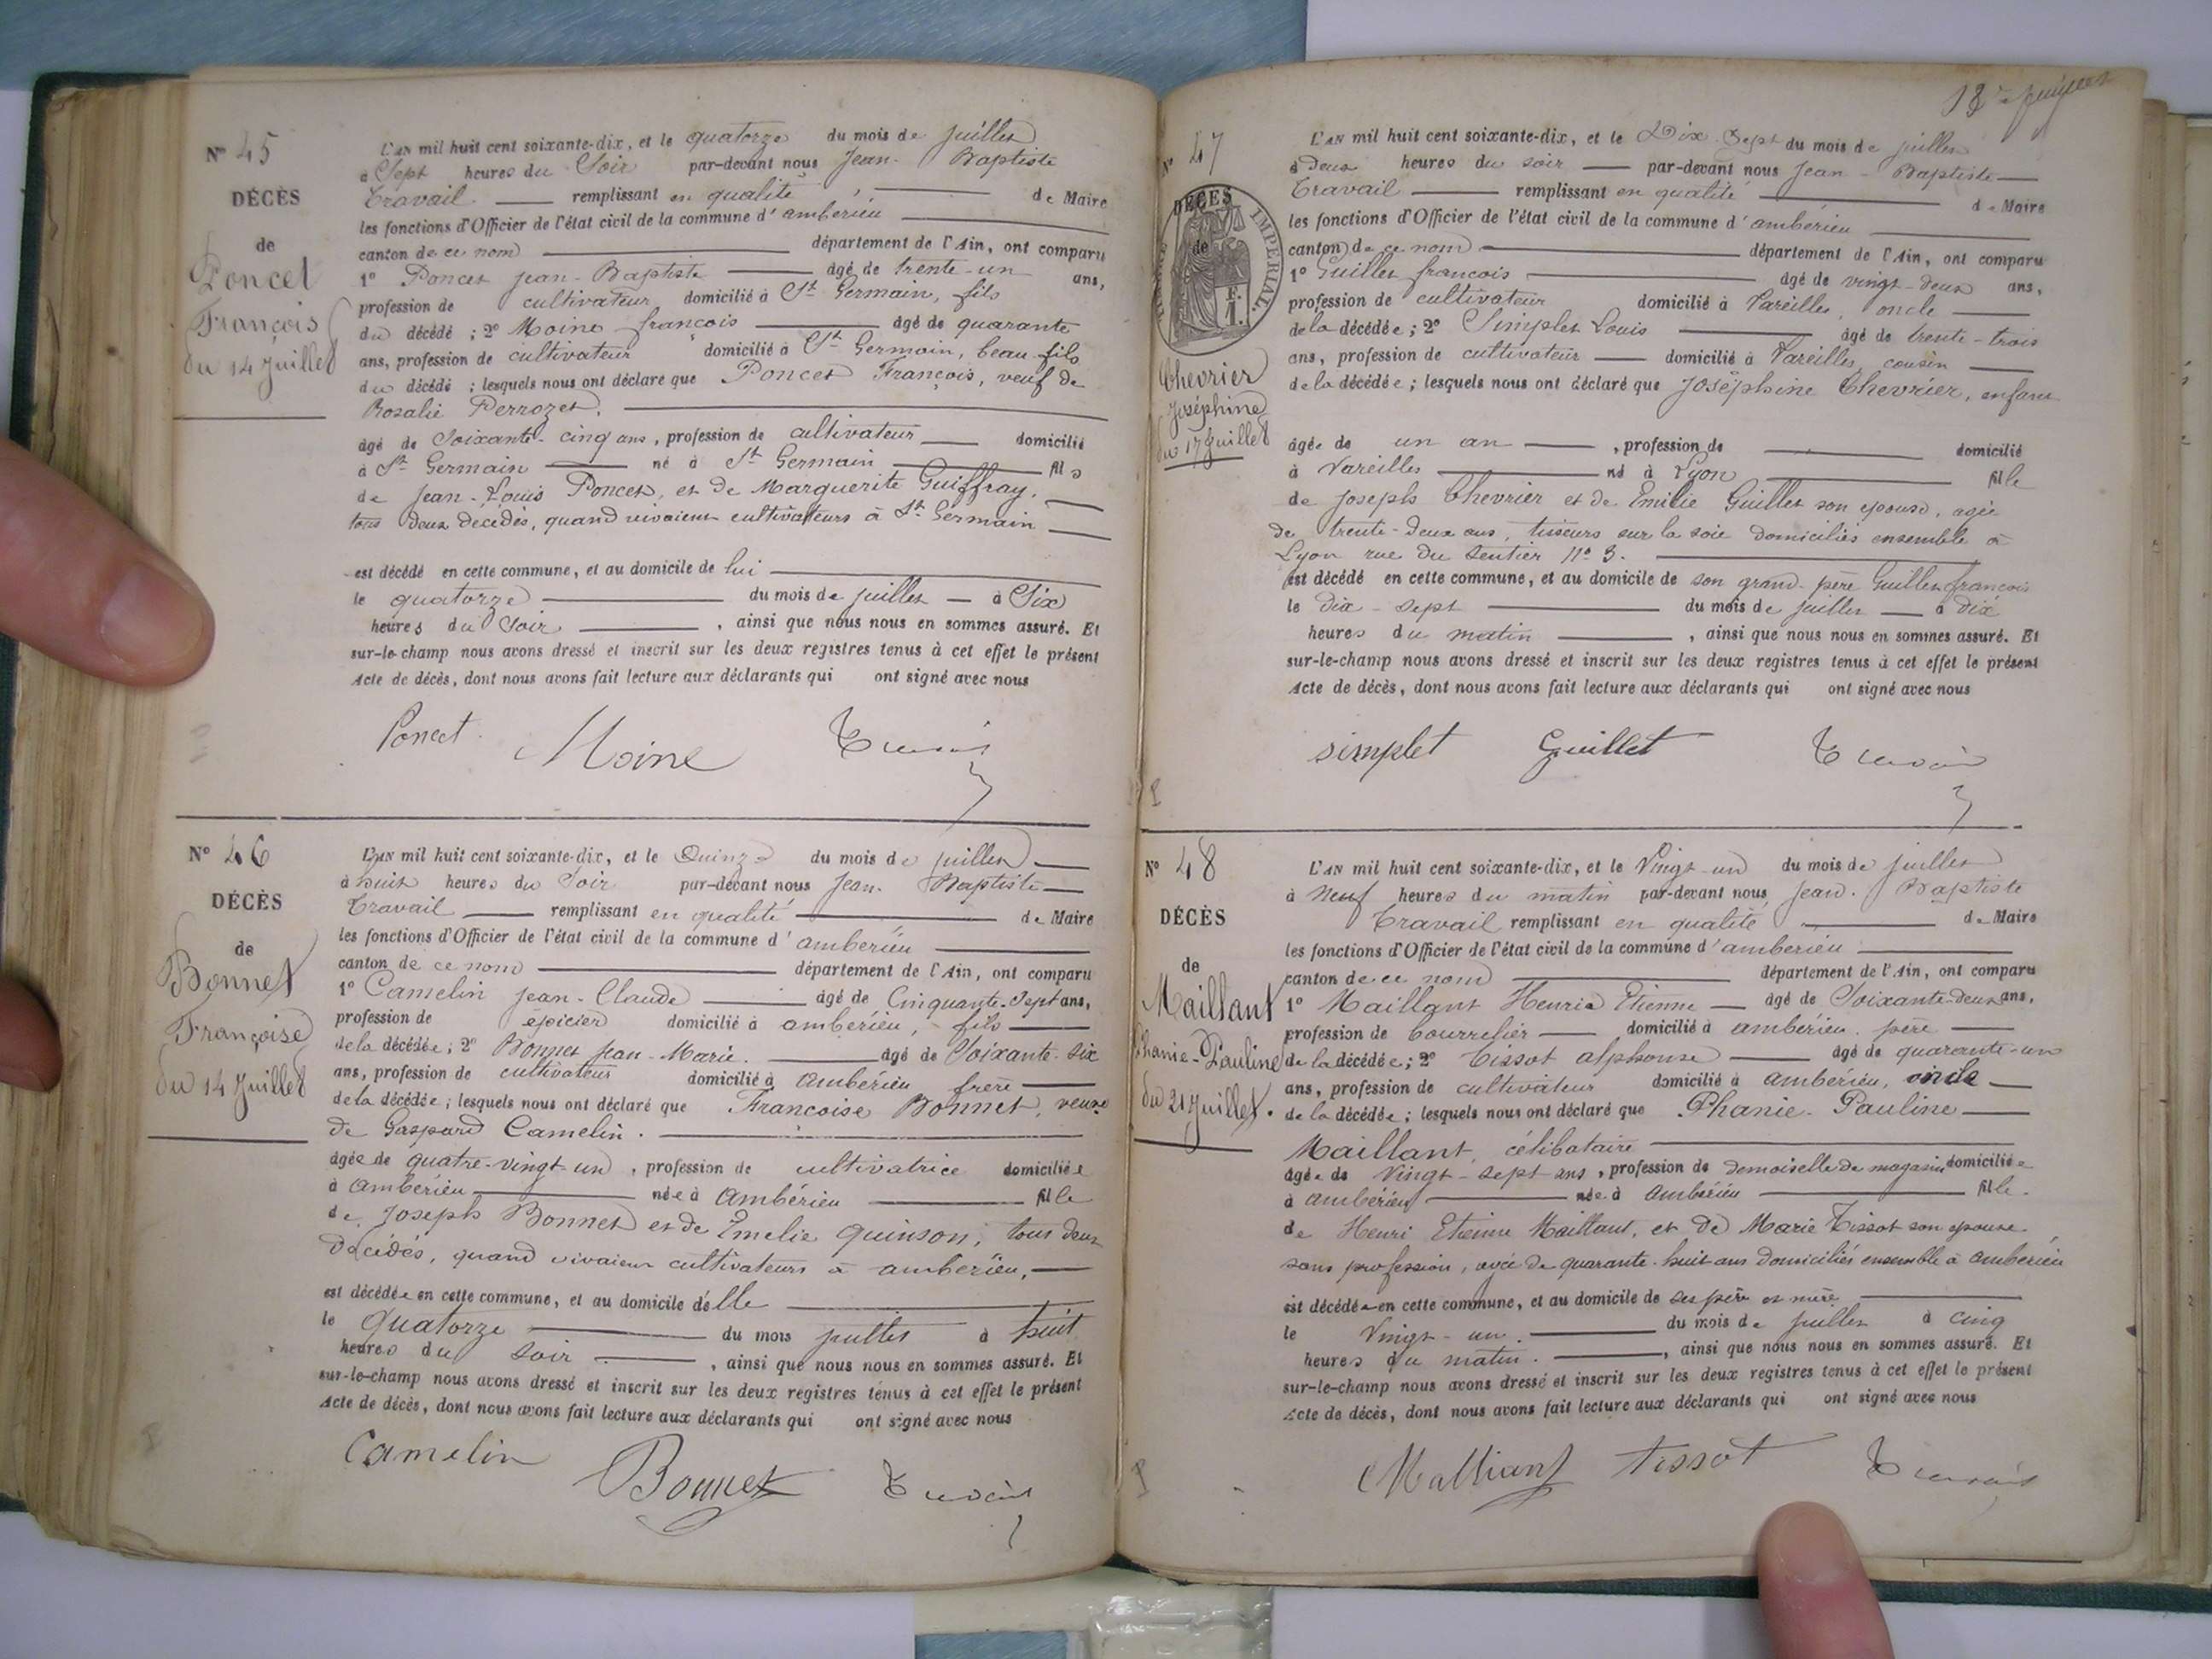 Nº 45
DÉCÈS
de
Poncet
François
du 14 Juillet
L'AN mil huit cent soixante-dix, et le quatorze du mois de juillet
à Sept heures du Soir par-devant nous Jean-Baptiste
Travail remplissant en qualité de Maire
les fonctions d'Officier de l'état civil de la commune d'ambérieu
canton de ce nom département de l'Ain, ont comparu
1º Poncet Jean-Baptiste âgé de trente-un ans,
profession de cultivateur domicilié à St Germain, fils
du décédé ; 2º Moine françois âgé de quarante
ans, profession de cultivateur domicilié à St Germain, beau-fils
du décédé ; lesquels nous ont déclaré que Poncet François, veuf de
Rosalie Perrozet,
âgé de Soixante-cinq ans, profession de cultivateur domicilié
à St Germain né à St Germain fils
de Jean-Louis Poncet, et de Marguerite Guiffray,
tous deux décédés, quand vivaient cultivateurs à St Germain
est décédé en cette commune, et au domicile de lui
le quatorze du mois de juillet à Six
heures du Soir, ainsi que nous nous en sommes assuré. Et
sur-le-champ nous avons dressé et inscrit sur les deux registres tenus à cet effet le présent
Acte de décès, dont nous avons fait lecture aux déclarants qui ont signé avec nous
Poncet Moine Travail
Nº 46
DÉCÈS
de
Bonnet
Françoise
du 14 Juillet
L'AN mil huit cent soixante-dix, et le Quinze du mois de juillet
à huit heures du Soir par-devant nous Jean-Baptiste
Travail remplissant en qualité de Maire
les fonctions d'Officier de l'état civil de la commune d'ambérieu
canton de ce nom département de l'Ain, ont comparu
1º Camelin Jean-Claude âgé de Cinquante-Sept ans,
profession de épicier domicilié à ambérieu, fils
de la décédée ; 2º Bonnet Jean-Marie. âgé de Soixante-six
ans, profession de cultivateur domicilié à ambérieu frère
de la décédée ; lesquels nous ont déclaré que Françoise Bonnet, veuve
de Gaspard Camelin.
âgée de quatre-vingt-un, profession de cultivatrice domiciliée
à ambérieu née à ambérieu fille
de Joseph Bonnet et de Emelie Quinson, tous deux
décédés, quand vivaient cultivateurs à ambérieu,
est décédée en cette commune, et au domicile d'elle
le Quatorze du mois juillet à huit
heures du soir, ainsi que nous nous en sommes assuré. Et
sur-le-champ nous avons dressé et inscrit sur les deux registres tenus à cet effet le présent
Acte de décès, dont nous avons fait lecture aux déclarants qui ont signé avec nous
Camelin Bonnet Travail
Nº 47
DÉCÈS
de
IMPÉRIAL
F.
1.
Chevrier
Joséphine
du 17 Juillet
L'AN mil huit cent soixante-dix, et le Dix-Sept du mois de juillet
à Deux heures du soir par-devant nous Jean-Baptiste
Travail remplissant en qualité de Maire
les fonctions d'Officier de l'état civil de la commune d'ambérieu
canton de ce nom département de l'Ain, ont comparu
1º Guillet françois âgé de vingt-deux ans,
profession de cultivateur domicilié à Vareilles, oncle
de la décédée ; 2º Simplet Louis âgé de trente-trois
ans, profession de cultivateur domicilié à Vareilles, cousin
de la décédée ; lesquels nous ont déclaré que Joséphine Chevrier, enfant
âgée de un an, profession de domicilié
à Vareilles né à Lyon fille
de Joseph Chevrier et de Emilie Guillet son épouse, agée
de trente-deux ans, tisseurs sur la soie domiciliés ensemble à
Lyon rue du Sentier Nº 3.
est décédé en cette commune, et au domicile de son grand-père Guillet françois
le Dix-sept du mois de juillet à dix
heures du matin, ainsi que nous nous en sommes assuré. Et
sur-le-champ nous avons dressé et inscrit sur les deux registres tenus à cet effet le présent
Acte de décès, dont nous avons fait lecture aux déclarants qui ont signé avec nous
simplet Guillet Travail
Nº 48
DÉCÈS
de
Maillant
Phanie-Pauline
du 21 Juillet.
L'AN mil huit cent soixante-dix, et le Vingt-un du mois de juillet
à Neuf heures du matin par-devant nous Jean-Baptiste
Travail remplissant en qualité de Maire
les fonctions d'Officier de l'état civil de la commune d'ambérieu
canton de ce nom département de l'Ain, ont comparu
1º Maillant Henri Etienne âgé de Soixante-deux ans,
profession de bourrelier domicilié à ambérieu. père
de la décédée ; 2º Tissot alphonse âgé de quarante-un
ans, profession de cultivateur domicilié à ambérieu, oncle
de la décédée ; lesquels nous ont déclaré que Phanie-Pauline
Maillant, célibataire
âgée de Vingt-sept ans, profession de demoiselle de magasin domiciliée
à ambérieu née à ambérieu fille
de Henri Etienne Maillant, et de Marie Tissot son épouse
sans profession, agée de quarante-huit ans domiciliés ensemble à ambérieu
est décédée en cette commune, et au domicile de ses père et mère
le Vingt-un. du mois de juillet à cinq
heures du matin., ainsi que nous nous en sommes assuré. Et
sur-le-champ nous avons dressé et inscrit sur les deux registres tenus à cet effet le présent
Acte de décès, dont nous avons fait lecture aux déclarants qui ont signé avec nous
Malliant tissot Travail